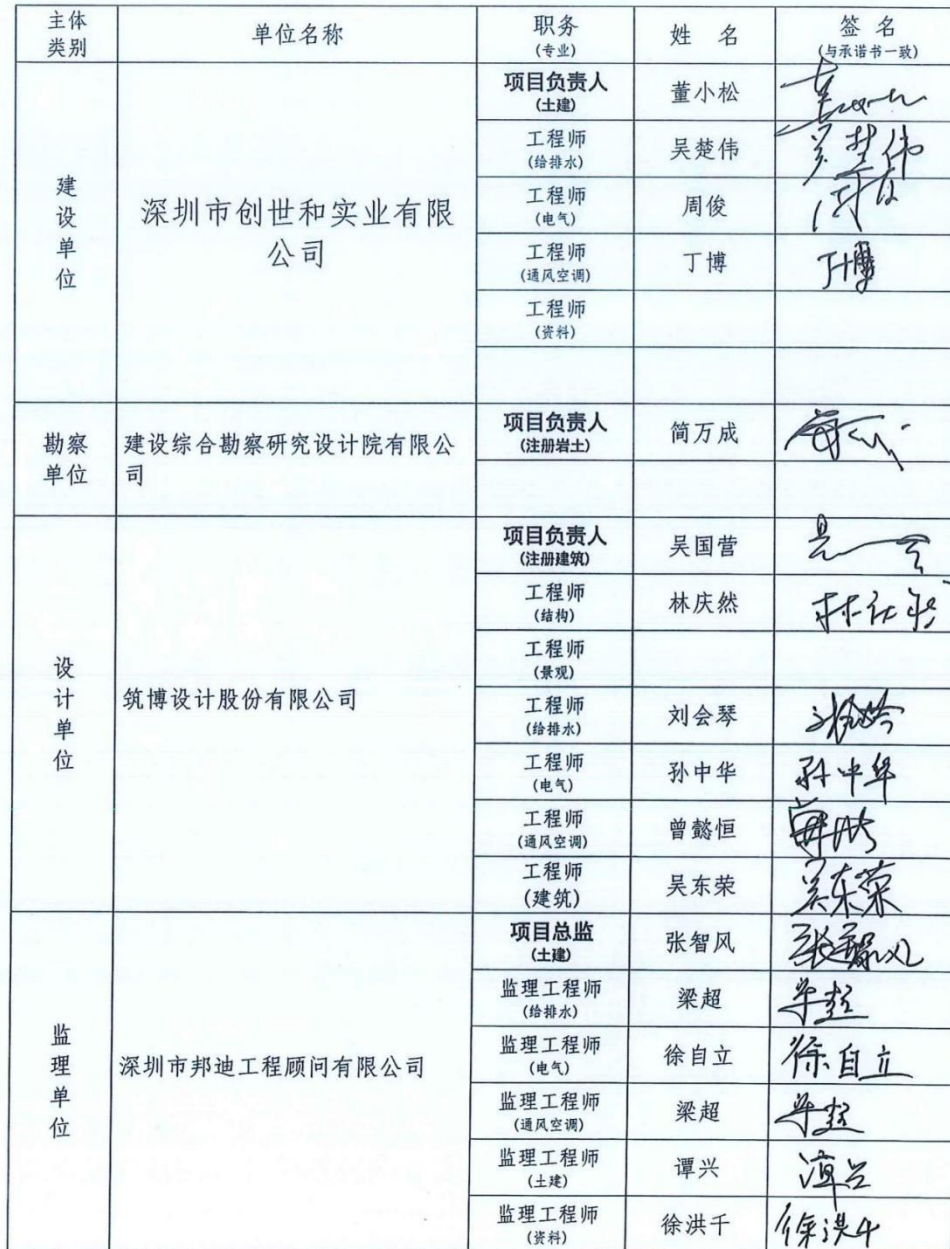 主体类别 单位名称 职务(专业) 姓 名 签 名(与承诺书一致)
建设单位 深圳市创世和实业有限公司
项目负责人(土建) 董小松
工程师(给排水) 吴楚伟 吴楚伟
工程师(电气) 周俊 周俊
工程师(通风空调) 丁博 丁博
工程师(资料)
勘察单位 建设综合勘察研究设计院有限公司
项目负责人(注册岩土) 简万成
设计单位 筑博设计股份有限公司
项目负责人(注册建筑) 吴国营
工程师(结构) 林庆然
工程师(景观)
工程师(给排水) 刘会琴
工程师(电气) 孙中华 孙中华
工程师(通风空调) 曾懿恒
工程师(建筑) 吴东荣 吴东荣
监理单位 深圳市邦迪工程顾问有限公司
项目总监(土建) 张智风 张智风
监理工程师(给排水) 梁超 梁超
监理工程师(电气) 徐自立 徐自立
监理工程师(通风空调) 梁超 梁超
监理工程师(土建) 谭兴 谭兴
监理工程师(资料) 徐洪千 徐洪千